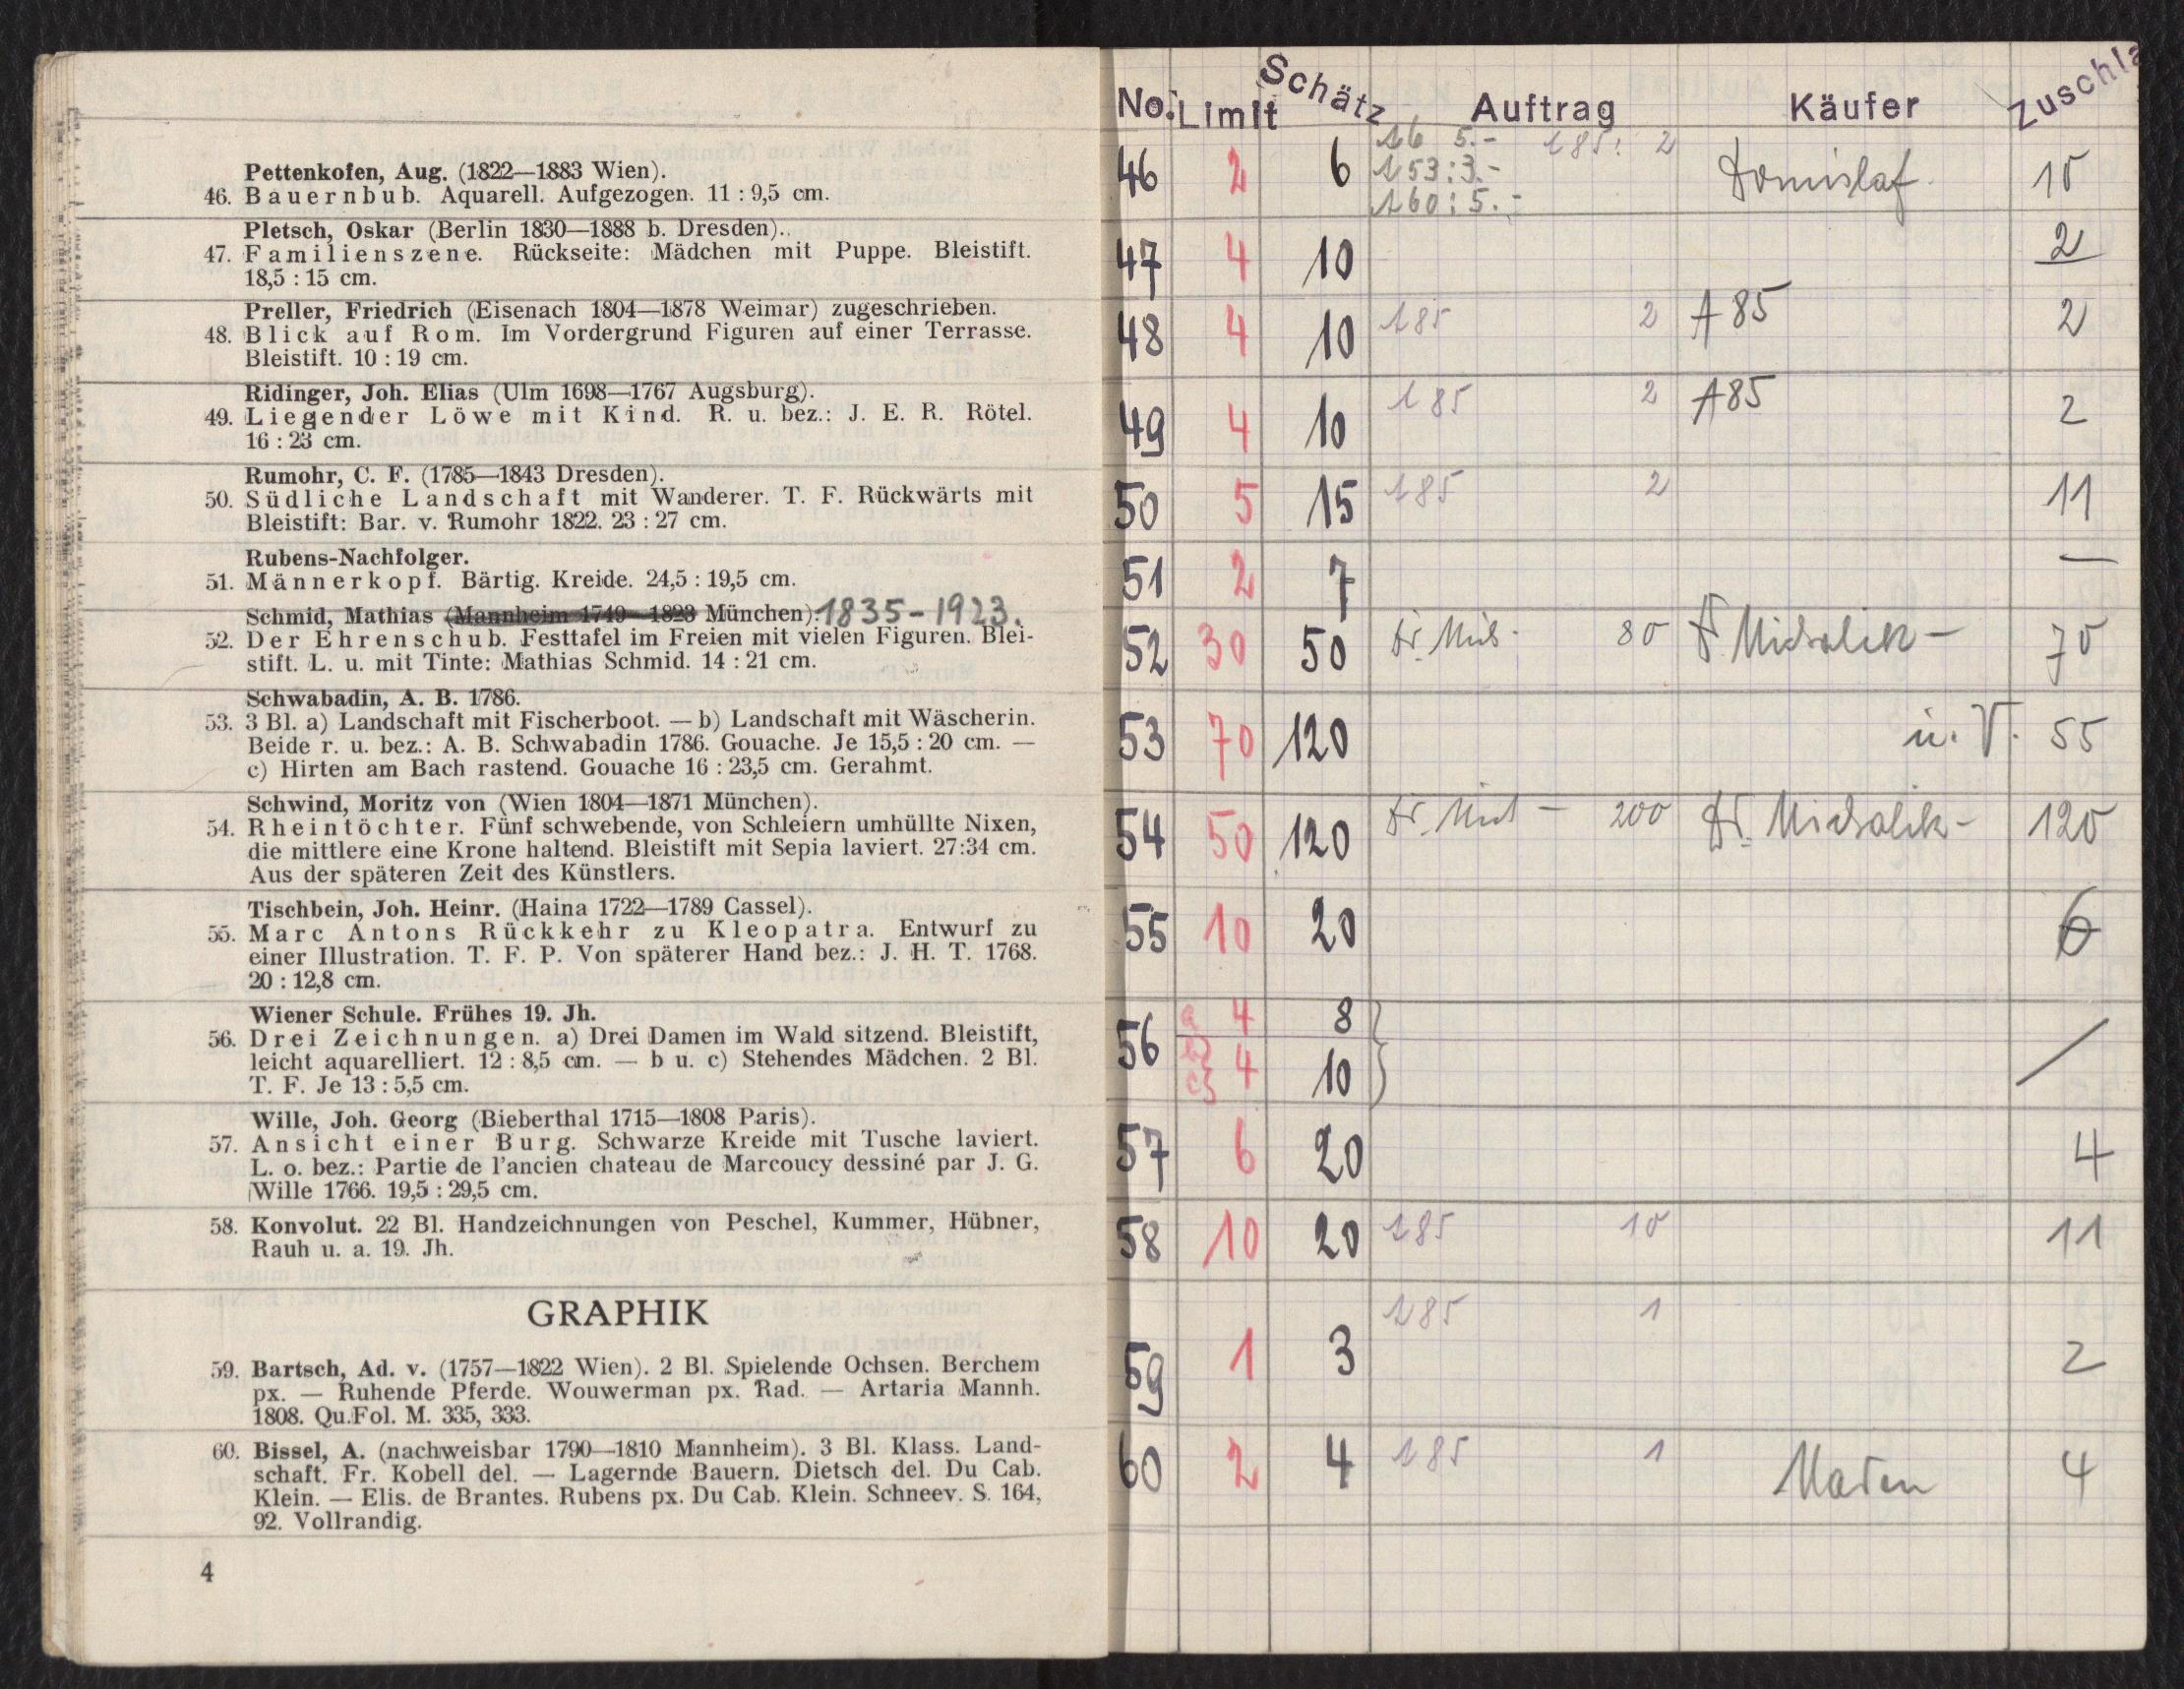 Pettenkofen, Aug. (1822—1883 Wien).
46. Bauernbub. Aquarell. Aufgezogen. 11 : 9,5 cm.
Pletsch, Oskar (Berlin 1830—1888 b. Dresden)..
47. Familienszene. Rückseite: Mädchen mit Puppe. Bleistift.
18,5 : 15 cm.
Preller, Friedrich (Eisenach 1804—1878 Weimar) zugeschrieben.
48. Blick auf Rom. Im Vordergrund Figuren auf einer Terrasse.
Bleistift. 10 : 19 cm.
Ridinger, Joh. Elias (Ulm 1698—1767 Augsburg).
49. Liegender Löwe mit Kind. R. u. bez.: J. E. R. Rötel.
16 : 23 cm.
Rumohr, C. F. (1785—1843 Dresden).
50. Südliche Landschaft mit Wanderer. T. F. Rückwärts mit
Bleistift: Bar. v. Rumohr 1822. 23 : 27 cm.
Rubens-Nachfolger.
51. Männerkopf. Bärtig. Kreide. 24,5 : 19,5 cm.
Schmid, Mathias (Mannheim 1749—1823 München). 1835-1923.
52. Der Ehrenschub. Festtafel im Freien mit vielen Figuren. Blei-
stift. L. u. mit Tinte: Mathias Schmid. 14 : 21 cm.
Schwabadin, A. B. 1786.
53. 3 Bl. a) Landschaft mit Fischerboot. — b) Landschaft mit Wäscherin.
Beide r. u. bez.: A. B. Schwabadin 1786. Gouache. Je 15,5 : 20 cm. —
c) Hirten am Bach rastend. Gouache 16 : 23,5 cm. Gerahmt.
Schwind, Moritz von (Wien 1804—1871 München).
54. Rheintöchter. Fünf schwebende, von Schleiern umhüllte Nixen,
die mittlere eine Krone haltend. Bleistift mit Sepia laviert. 27:34 cm.
Aus der späteren Zeit des Künstlers.
Tischbein, Joh. Heinr. (Haina 1722—1789 Cassel).
55. Marc Antons Rückkehr zu Kleopatra. Entwurf zu
einer Illustration. T. F. P. Von späterer Hand bez.: J. H. T. 1768.
20 : 12,8 cm.
Wiener Schule. Frühes 19. Jh.
56. Drei Zeichnungen. a) Drei Damen im Wald sitzend. Bleistift,
leicht aquarelliert. 12 : 8,5 cm. — b u. c) Stehendes Mädchen. 2 Bl.
T. F. Je 13 : 5,5 cm.
Wille, Joh. Georg (Bieberthal 1715—1808 Paris).
57. Ansicht einer Burg. Schwarze Kreide mit Tusche laviert.
L. o. bez.: Partie de l'ancien chateau de Marcoucy dessiné par J. G.
Wille 1766. 19,5 : 29,5 cm.
58. Konvolut. 22 Bl. Handzeichnungen von Peschel, Kummer, Hübner,
Rauh u. a. 19. Jh.
GRAPHIK
59. Bartsch, Ad. v. (1757—1822 Wien). 2 Bl. Spielende Ochsen. Berchem
px. — Ruhende Pferde. Wouwerman px. Rad. — Artaria Mannh.
1808. Qu.Fol. M. 335, 333.
60. Bissel, A. (nachweisbar 1790—1810 Mannheim). 3 Bl. Klass. Land-
schaft. Fr. Kobell del. — Lagernde Bauern. Dietsch del. Du Cab.
Klein. — Elis. de Brantes. Rubens px. Du Cab. Klein. Schneev. S. 164,
92. Vollrandig.
4
No. Limit Schätz Auftrag Käufer Zuschla
46 2 6 5.- 185: 2 10
153:3.-
160:5.-
47 4 10 2
48 4 10 185 2 A 85 2
49 4 10 185 2 A85 2
50 5 15 185 2 11
51 2 7 —
52 30 50 80 Michalik - 70
53 70 120 u. V. 55
54 50 120 200 Dr. Michalik - 120
55 10 20 6
56 a 4 8
b) c) 4 10
57 6 20 4
58 10 20 185 10 11
59 1 3 185 1 2
60 2 4 185 1 4